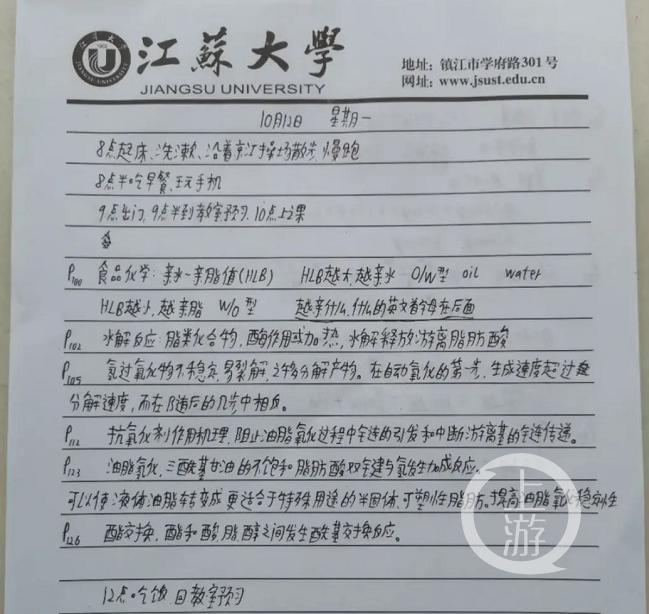 江苏大学
JIANGSU UNIVERSITY
地址: 镇江市学府路301号
网址: www.jsust.edu.cn
10月12日 星期一
8点起床、洗漱、沿着京江操场散步、慢跑
8点半吃早餐、玩手机
9点出门, 9点半到教室预习, 10点上课
P100 食品化学: 亲水-亲脂值(HLB) HLB越大, 越亲水 O/W型 oil water
HLB越小, 越亲脂 W/O型 越亲什么, 什么的英文首字母在后面
P102 水解反应: 脂类化合物, 酶作用或加热, 水解释放游离脂肪酸
P105 氢过氧化物不稳定, 易裂解, 许多分解产物。在自动氧化的第一步, 生成速度超过
分解速度, 而在随后的几步中相反。
P112 抗氧化剂作用机理, 阻止油脂氧化过程中链的引发和中断游离基的链传递。
P123 油脂氢化, 三酰基甘油的不饱和脂肪酸双键与氢发生加成反应。
可以使液体油脂转变成更适合于特殊用途的半固体, 可塑性脂肪。提高油脂氧化稳定性
P126 酯交换, 酯和酸, 酯醇之间发生酰基交换反应。
12点吃饭 回教室预习
上游